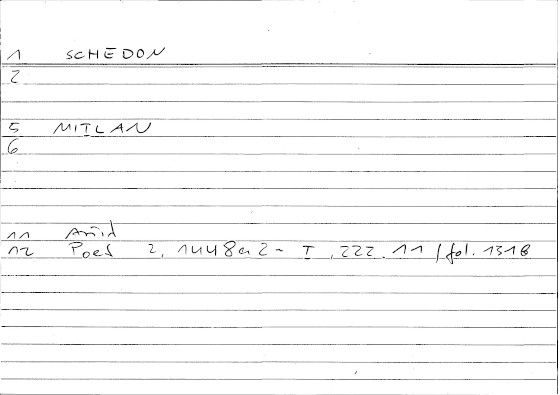 1 SCHEDON
2
5 MITLAN
6
11
12 Poet 2, 1448a2 - I, 222. 11 / fol. 131b